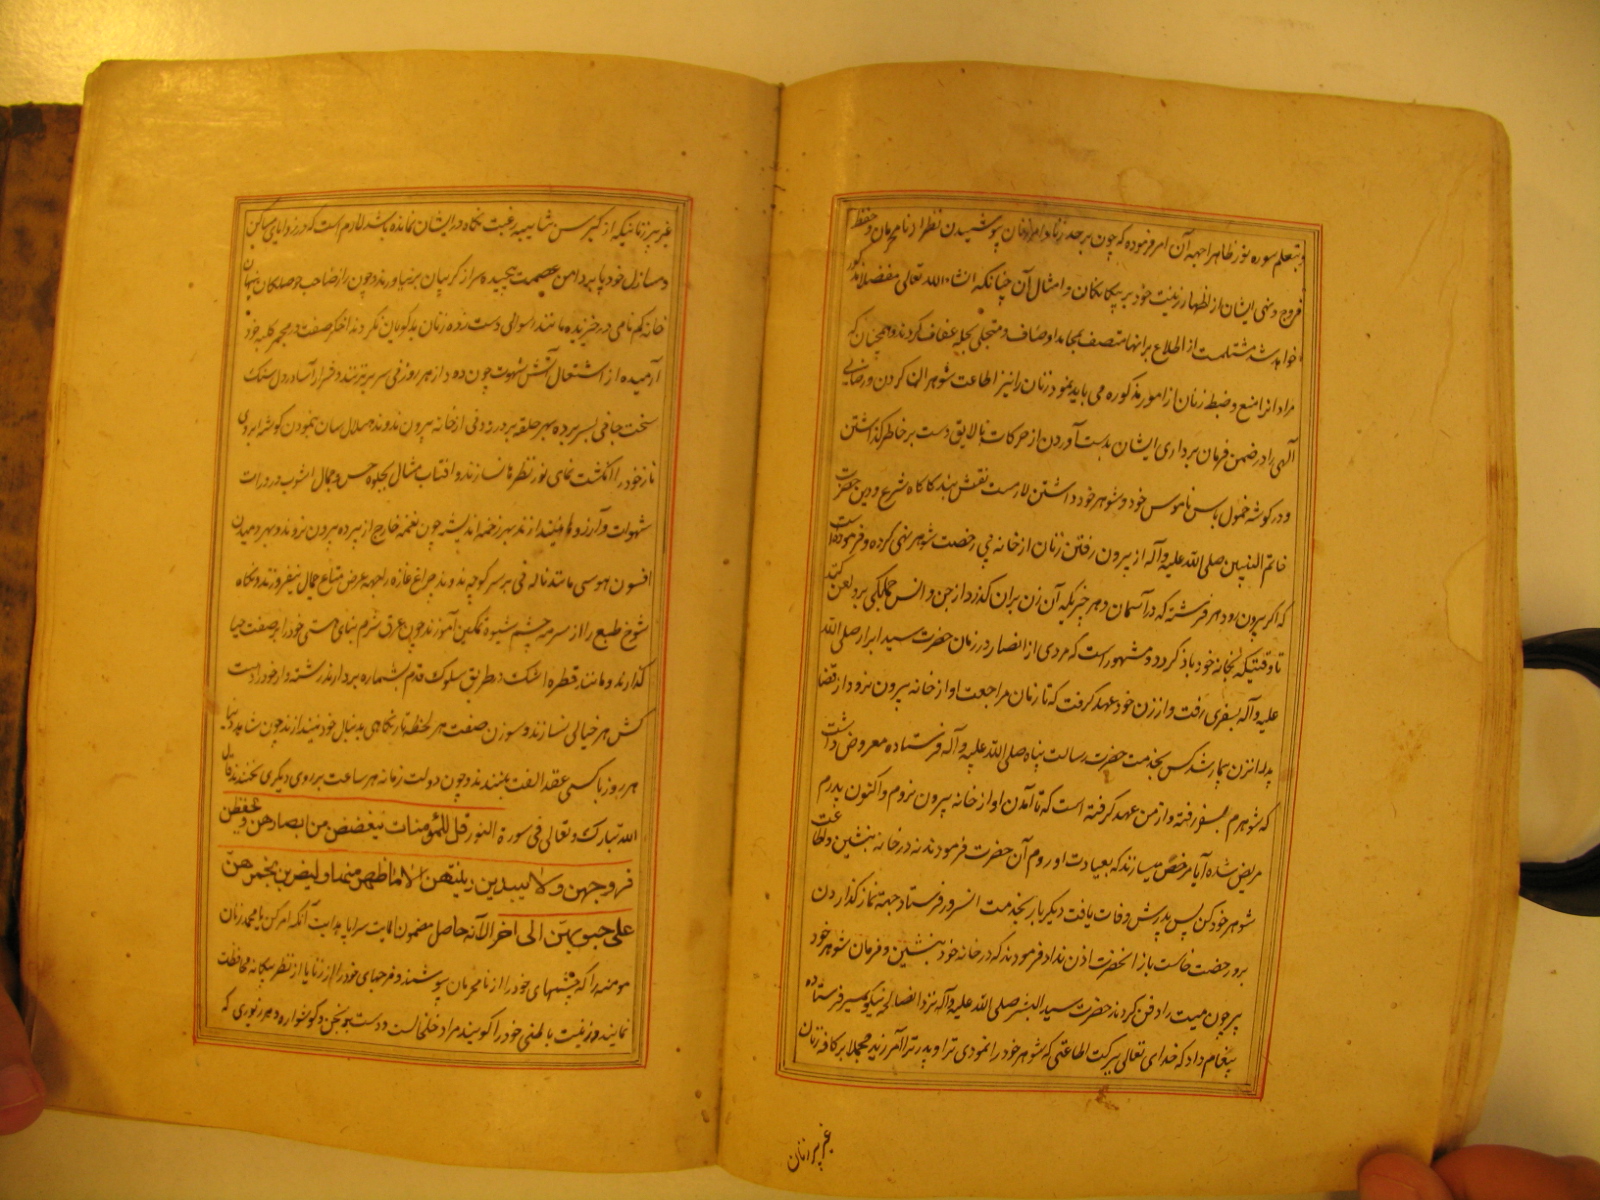 و بتعلیم سوره نور ظاهرا جهه آن امر فرموده که چون بر جد زنا و امر زنان پوشیدن نظر از نامحرمان و حفظ
فروج و نهی ایشان از اظهار زینت خود بر بیگانگان و امثال آن چنانکه انشاء الله تعالی مفصلا مذکور
خواهد شد مشتملست از اطلاع بر آنها متصف بمحامد اوصاف و متجلی بحلیه عفاف گردند و همچنان که
مردان را منع و ضبط زنان از امور مذکوره می باید نمود زنان را نیز اطاعت شوهر ان کردن و رضای
الهی را در ضمن فرمان برداری ایشان بدست آوردن از حرکات نالایق دست بر خاطر گذاشتن
و در گوشه خمول پاس ناموس خود و شوهر خود داشتن لازمست نقش بند کارگاه شرع و دین حضرت
خاتم النبیین صلی الله علیه و آله از بیرون رفتن زنان از خانه بی رخصت شوهر نهی کرده و فرموده است
که اگر بیرون رود هر فرشته که در آسمان و هر چیز که آن زن بر آن گذرد از جن و انس جملگی بر و لعن کنند
تا وقتیکه بخانه خود باز گردد و مشهور است که مردی از انصار در زمان حضرت سید ابرار صلی الله
علیه و آله بسفری رفت و از زن خود عهد گرفت که تا زمان مراجعت او از خانه بیرون نرود از قضا
پدر آنزن بیمار شد کس بخدمت حضرت رسالت پناه صلی الله علیه و آله فرستاده معروض داشت
که شوهرم بسفر رفته و از من عهد گرفته است که تا آمدن او از خانه بیرون نروم و اکنون پدرم
مریض شده آیا مرخص میسازند که بعیادت او روم آن حضرت فرمودند نه در خانه بنشین و اطاعت
شوهر خود کن پس پدرش وفات یافت دیگر بار بخدمت آنسرور فرستاد جهة نماز گذاردن
برو رخصت خاست باز آنحضرت اذن نداد فرمودند که در خانه خود بنشین و فرمان شوهر خود
بر چون میت را دفن کردند حضرت سید البشر صلی الله علیه و آله نزد انصالحه نیکو سیر فرستاده
پیغام داد که خدای تعالی ببرکت اطاعتی که شوهر خود را نمودی ترا و پدر ترا آمرزید مجملا بر کافه زنان
غیر پیر زنان
غیر پیر زنانیکه از کبر سن شایبه رغبت نکاه در ایشان نمانده باشد لازم است که در زوایای مساکن
و منازل خود پا بر دامن عصمت پیچیده سر از گریبان بر نیاورند و چون راز صاحب حوصلگان پنهان
خانه گم نامی در خزیده مانند رسوائی دست زده زنان بدگویان نگردند اخگر صفت در مجمر کلبه خود
آرمیده از اشتعال آتش شهوت چون دود از هر روزنی سر بر نزنند و شرار آسا در دل سنگ
سخت جانی بسر برده بهر حلقه بر در زدنی از خانه بیرون ندوند هلال سان بنمودن گوشه ابروی
ناز خود را انگشت نمای نور نظر ها نسازند و افتاب مثال بجلوه حسن و جمال آشوب در ذرات
شهوات و آرزوها نیندازند بهر زخمه اندیشه چون نغمه خارج از پرده بیرون نروند و بهر دمیدن
افسون هوسی مانند ناله نی بر سر کوچه ندوند چراغ غازه را بجهه عرض متاع جمال نیفروزند و نگاه
شوخ طبع را از سرمه چشم شیوه تمکین آموزند چون عرق شرم بنای هستی خود را بر صفت حیا
گذارند و مانند قطره اشک در طریق سلوک قدم شماره بردارند رشته وار خود را دست
کش هر خیالی نسازند و سوزن صفت هر لحظه تار نگاهی بدنبال خود نیندازند چون شاهد دنیا
هر روز با کسی عقد الفت نبندند و چون دولت زمانه هر ساعت بر روی دیگری نخندند قال
الله تبارک و تعالی فی سورة النور قل للمؤمنات یغضضن من ابصارهن و یحفظن
فروجهن ولا یبدین زینتهن الا ما ظهر منها و لیضربن بخمرهن
علی جیوبهن الی اخر الآیه حاصل مضمون هدایت آنکه امر کن یا محمد زنان
مومنه را که چشمهای خود را از نامحرمان پوشند و فرجهای خود را از زنا یا از نظر بیگانه محافظت
نمایند و زینت باطنی خود را گویند مراد خلخالست و دست برنجن و گوشواره و هر زیوری که